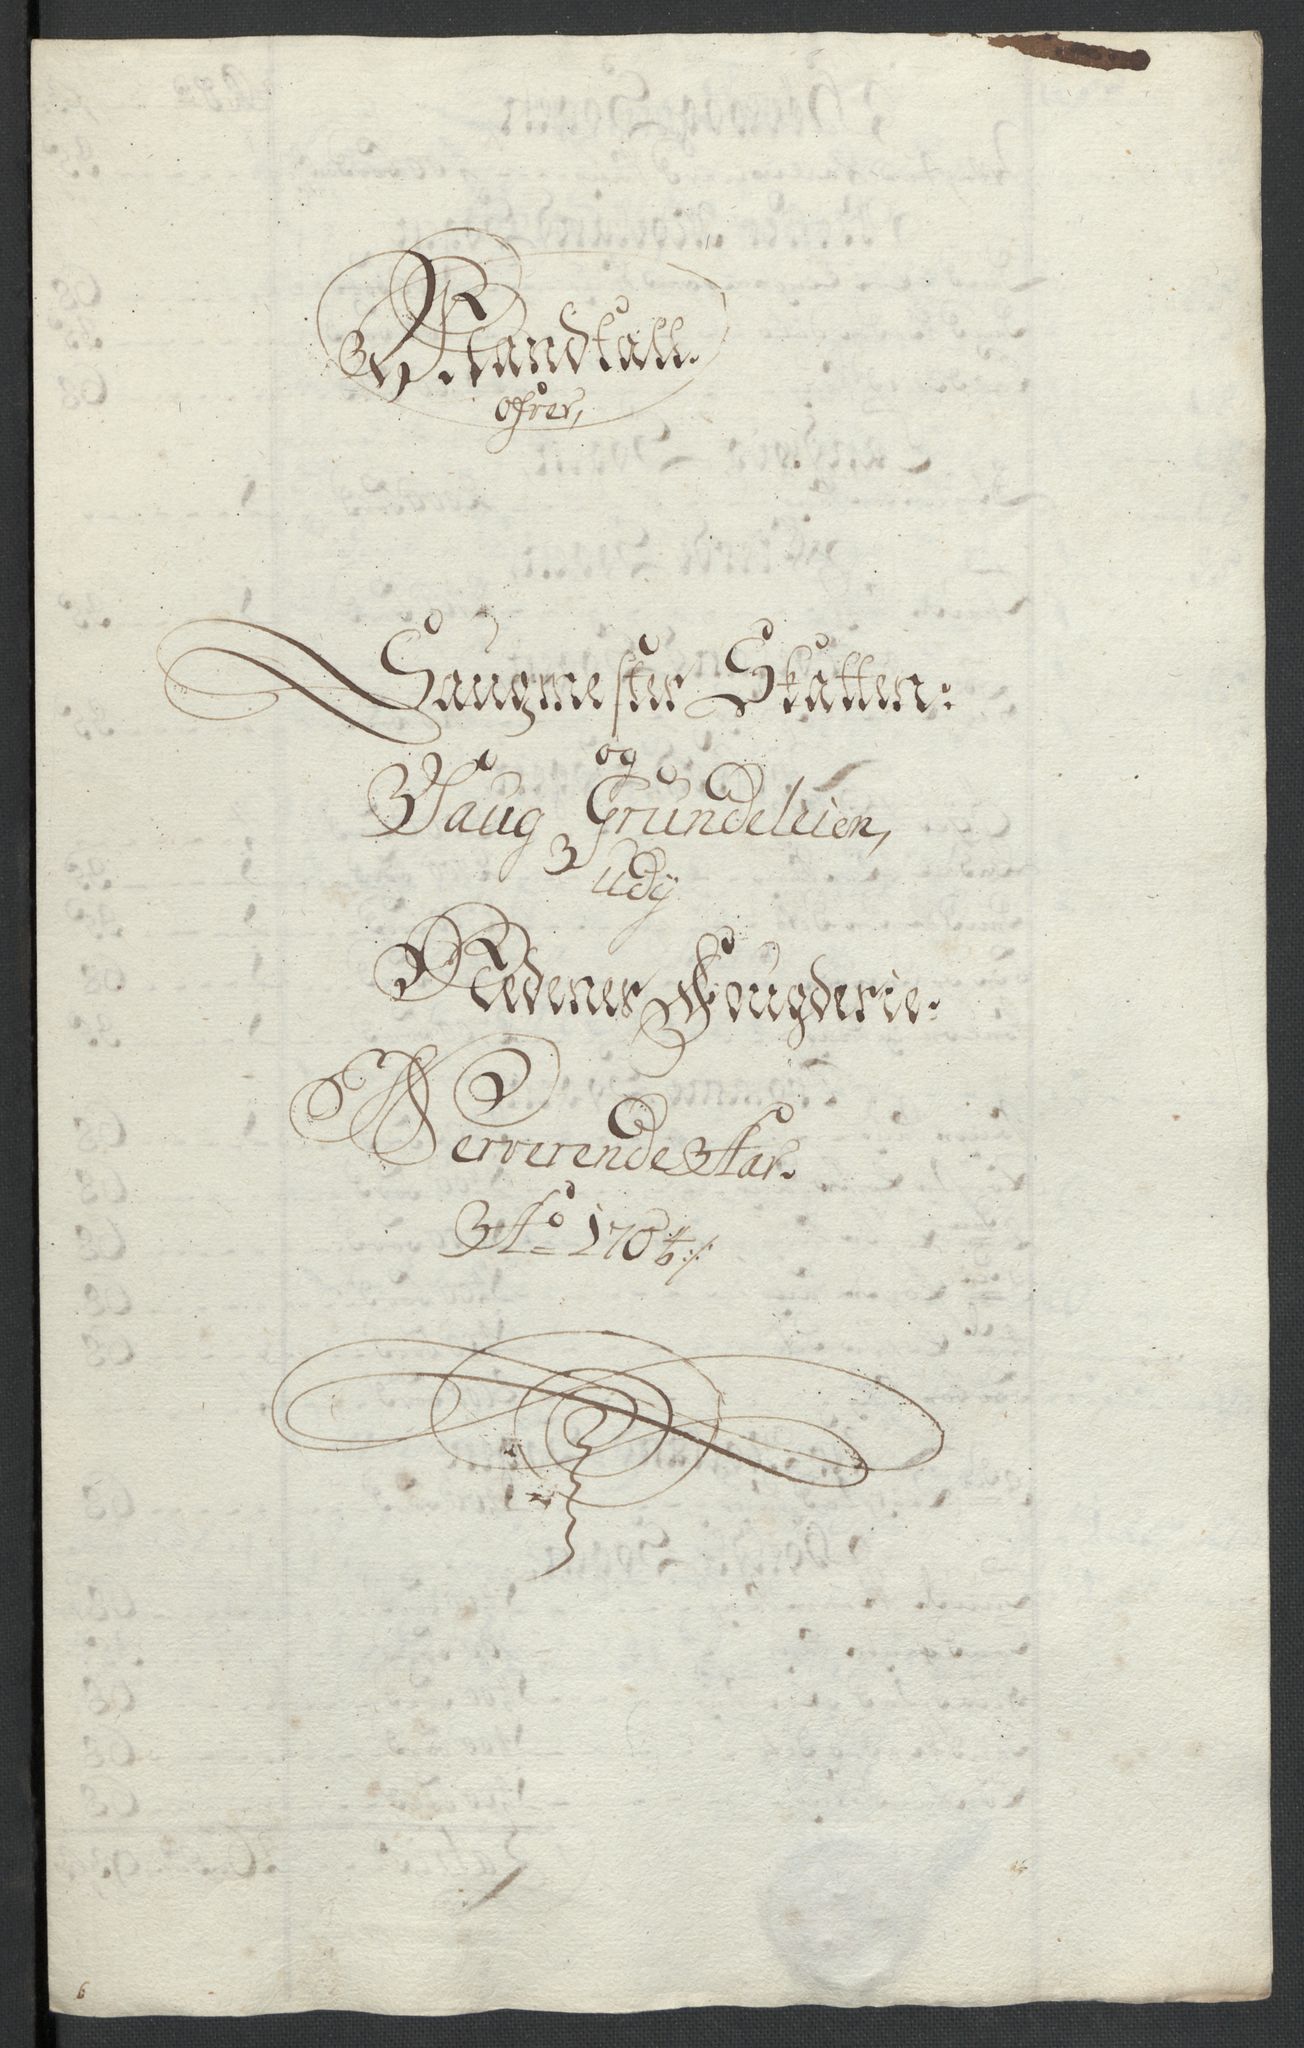 Mandtall
ofver,
Saugmester Skatten:
og
Saug Grundeleien,
udÿ
Nedenes Fougderie.
Nerverende Aar.
Ao 1704:/:
6